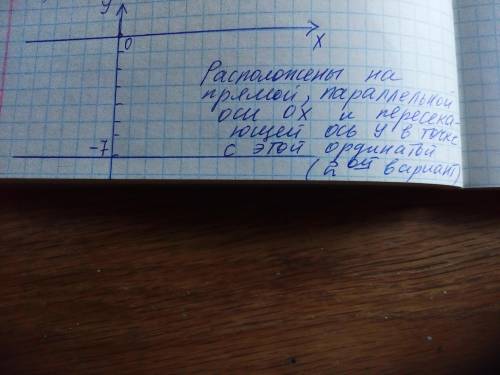 y
0
x
Расположены на
прямой, параллельной
оси ОХ и пересека-
ющей ось У в точке
с этой ординатой
-7
(2ой вариант)